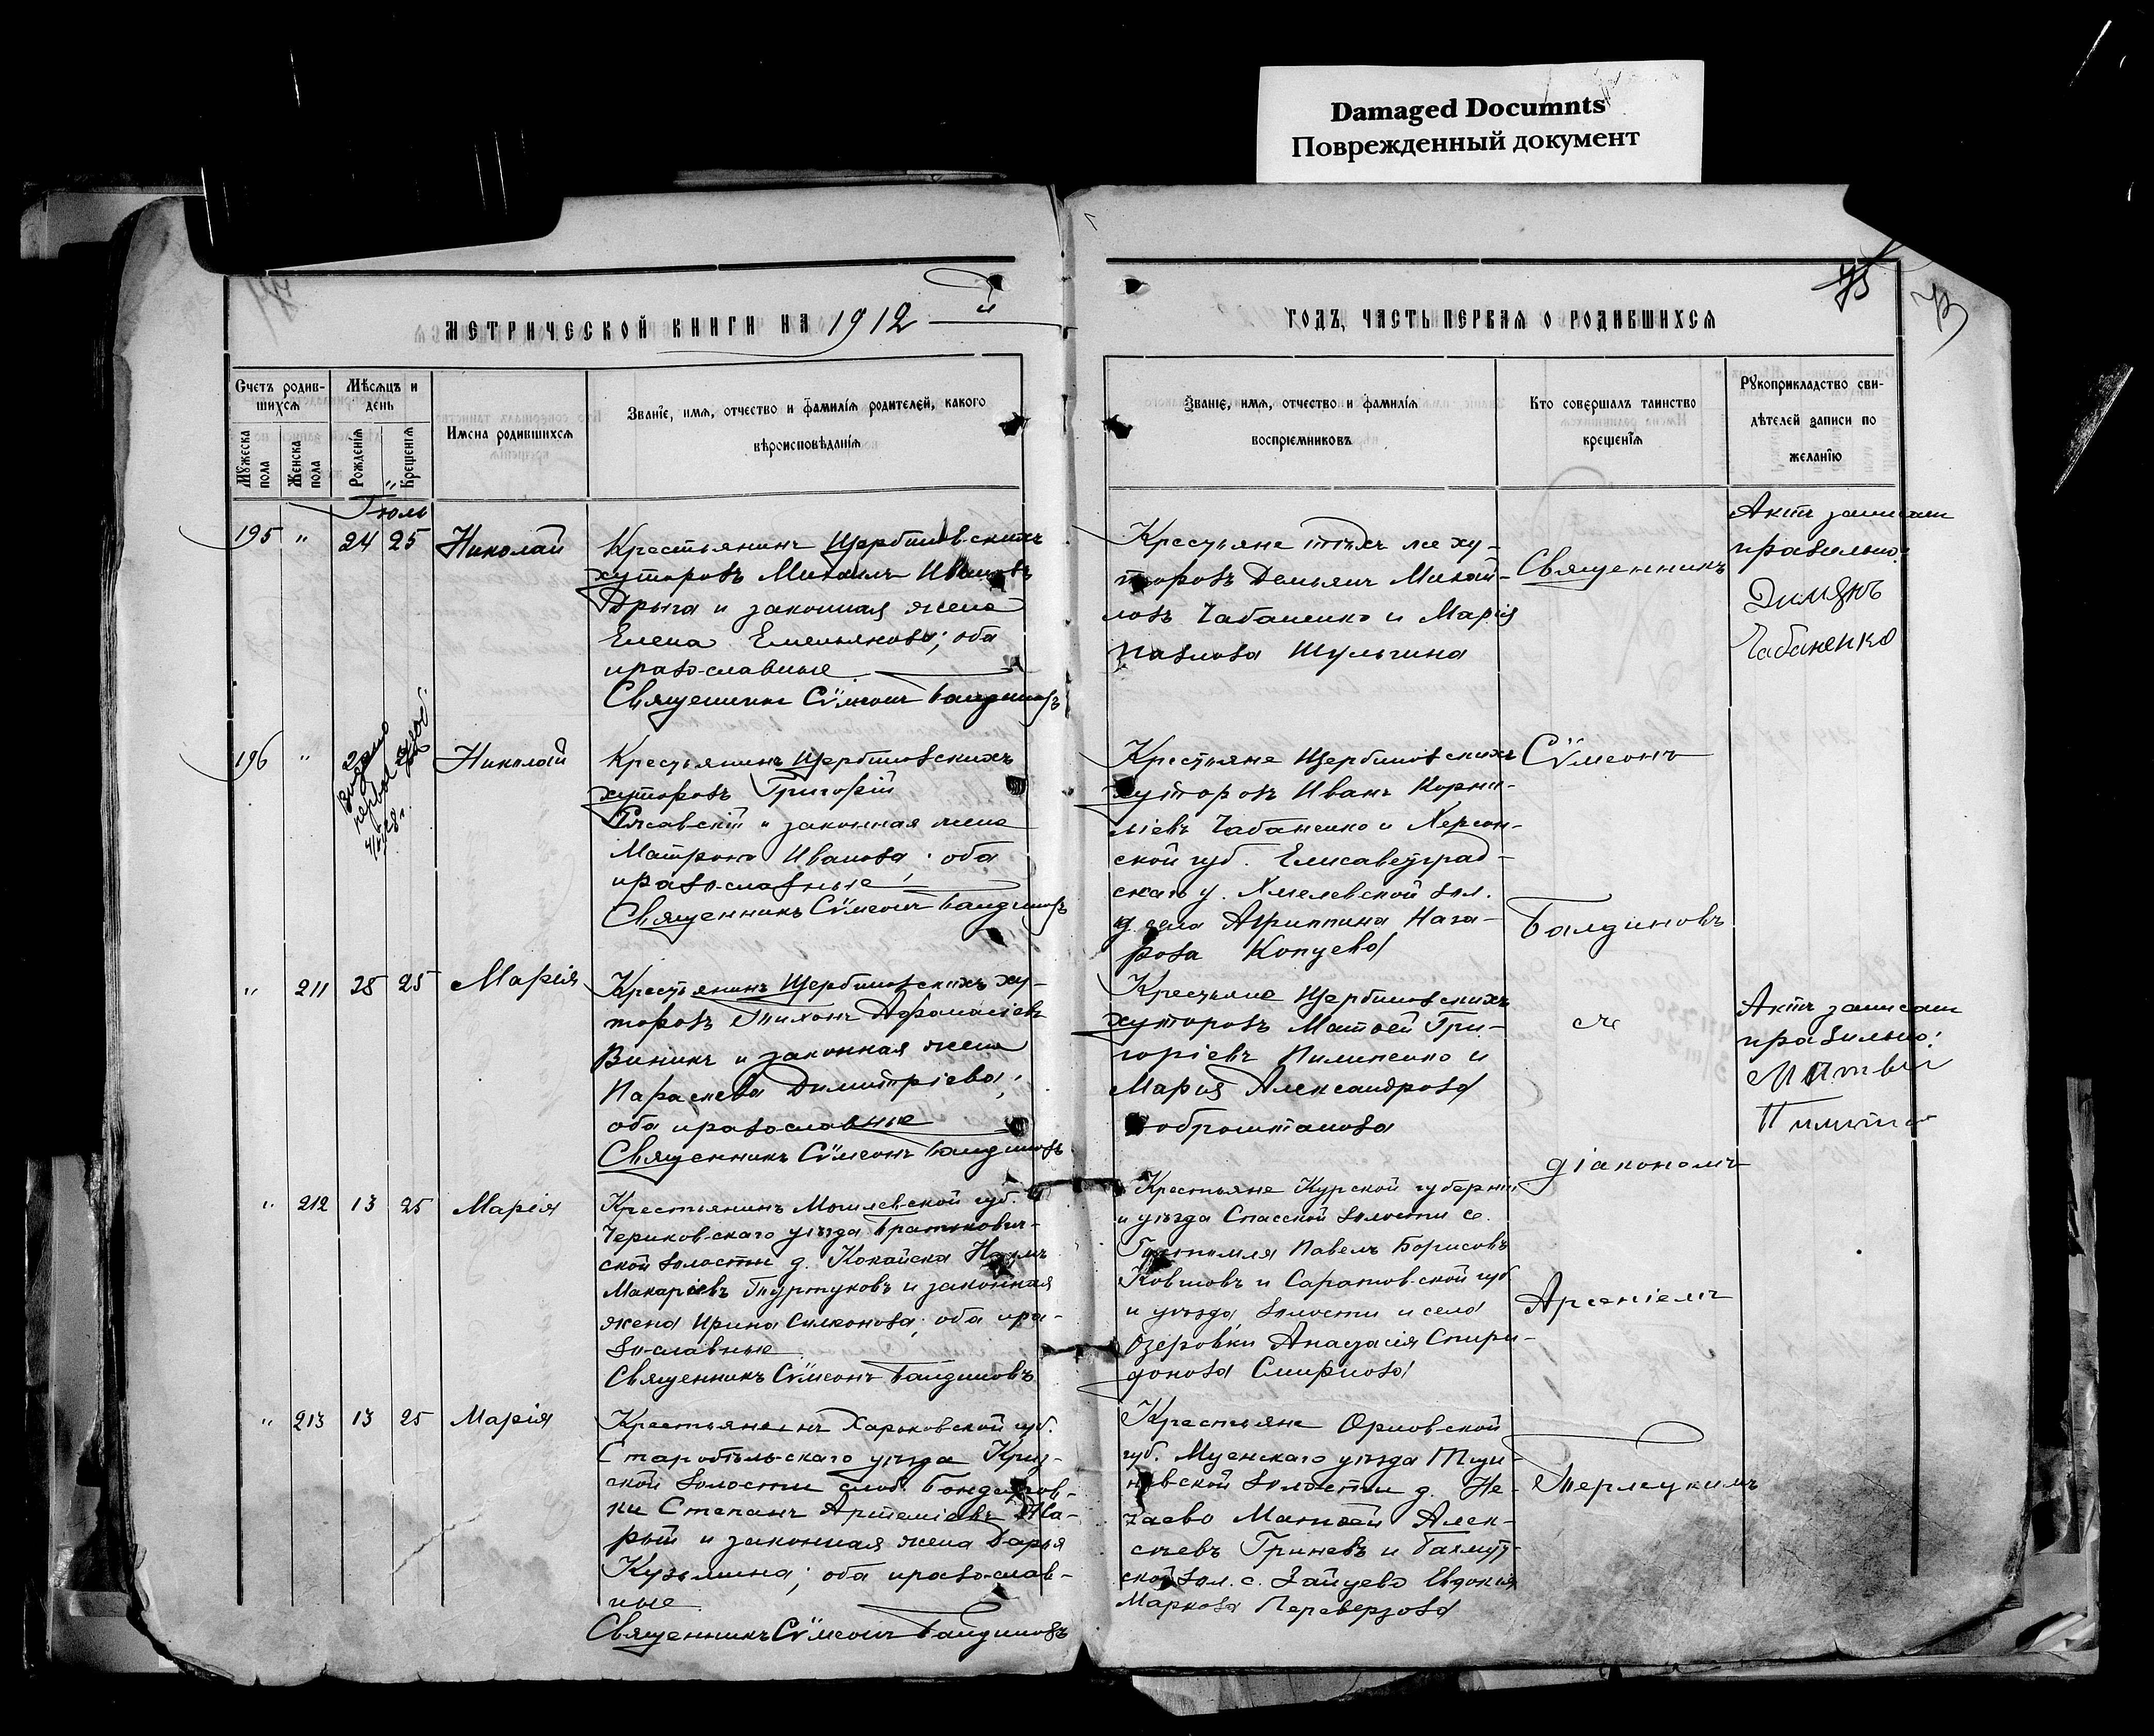 Damaged Documnts
Поврежденный документ
75
МЕТРИЧЕСКОЙ КНИГИ НА 1912 й
ГОДЪ, ЧАСТЬ ПЕРВАЯ О РОДИВШИХСЯ
Счетъ родив-
шихся
Мужеска пола
Женска пола
Мѣсяцъ и
день
Рожденія
Крещенія
Имена родившихся
Званіе, имя, отчество и фамилія родителей, какого
вѣроисповѣданія
Званіе, имя, отчество и фамилія
воспріемниковъ
Кто совершалъ таинство
крещенія
Рукоприкладство сви-
дѣтелей записи по
желанію
Іюль
195 " 24 25 Николай
Крестьянинъ Щербиновскихъ
хуторовъ Михаилъ Ивановъ
Дрыга и законная жена
Елена Емельянова; оба
православные
Священникъ Сѵмеонъ Балдиновъ
Крестьяне тѣхъ же ху-
торовъ Демьянъ Михай-
ловъ Чабаненко и Марія
Павлова Шульгина
Священникъ
Актъ записанъ
правильно:
Димянъ
Чабаненко
196 " Николай
Крестьянинъ Щербиновскихъ
хуторовъ Григорій
и законная жена
Матрона Иванова; оба
православные
Священникъ Сѵмеонъ Балдиновъ
Крестьяне Щербиновскихъ
хуторовъ Иванъ Корни-
ліевъ Чабаненко и Херсон-
ской губ. Елисаветград-
скаго у. Хмелевской вол.
села Агриппина Наза-
рова Копцева
Сѵмеонъ
Балдиновъ
" 211 28 25 Марія
Крестьянинъ Щербиновскихъ ху-
торовъ Тихонъ Афанасіевъ
Виникъ и законная жена
Параскева Димитріева;
оба православные
Священникъ Сѵмеонъ Балдиновъ
Крестьяне Щербиновскихъ
хуторовъ Матвей Гри-
горіевъ Пилипенко и
Марія Александрова
Доброштанова
съ
діакономъ
Актъ записанъ
правильно:
Матвей
" 212 13 25 Марія
Крестьянинъ Могилевской губ.
Чериковскаго уѣзда
ской волости д. Наумъ
Макаріевъ Туртуковъ и законная
жена Ирина Симеонова; оба пра-
вославные
Священникъ Сѵмеонъ Балдиновъ
Крестьяне Курской губерніи
и уѣзда Спасской волости с.
Павелъ Борисовъ
Ковшовъ и Саратовской губ
и уѣзда, волости и села
Озеровки Анастасія Спири-
донова Смирнова
Арсеніемъ
" 213 13 25 Марія
Крестьянинъ Харьковской губ.
Старобѣльскаго уѣзда
ской волости слоб. Бондаров-
ки Степанъ Артеміевъ
и законная жена Дарья
Кузьмина; оба православ-
ные
Священникъ Сѵмеонъ Балдиновъ
Крестьяне Орловской
губ. Мценскаго уѣзда
новской волости д. Не-
чаево Матвей Алек-
сѣевъ Гриневъ и Бахмут-
ской вол. с. Зайцево Евдокія
Маркова Переверзова
Терлецкимъ